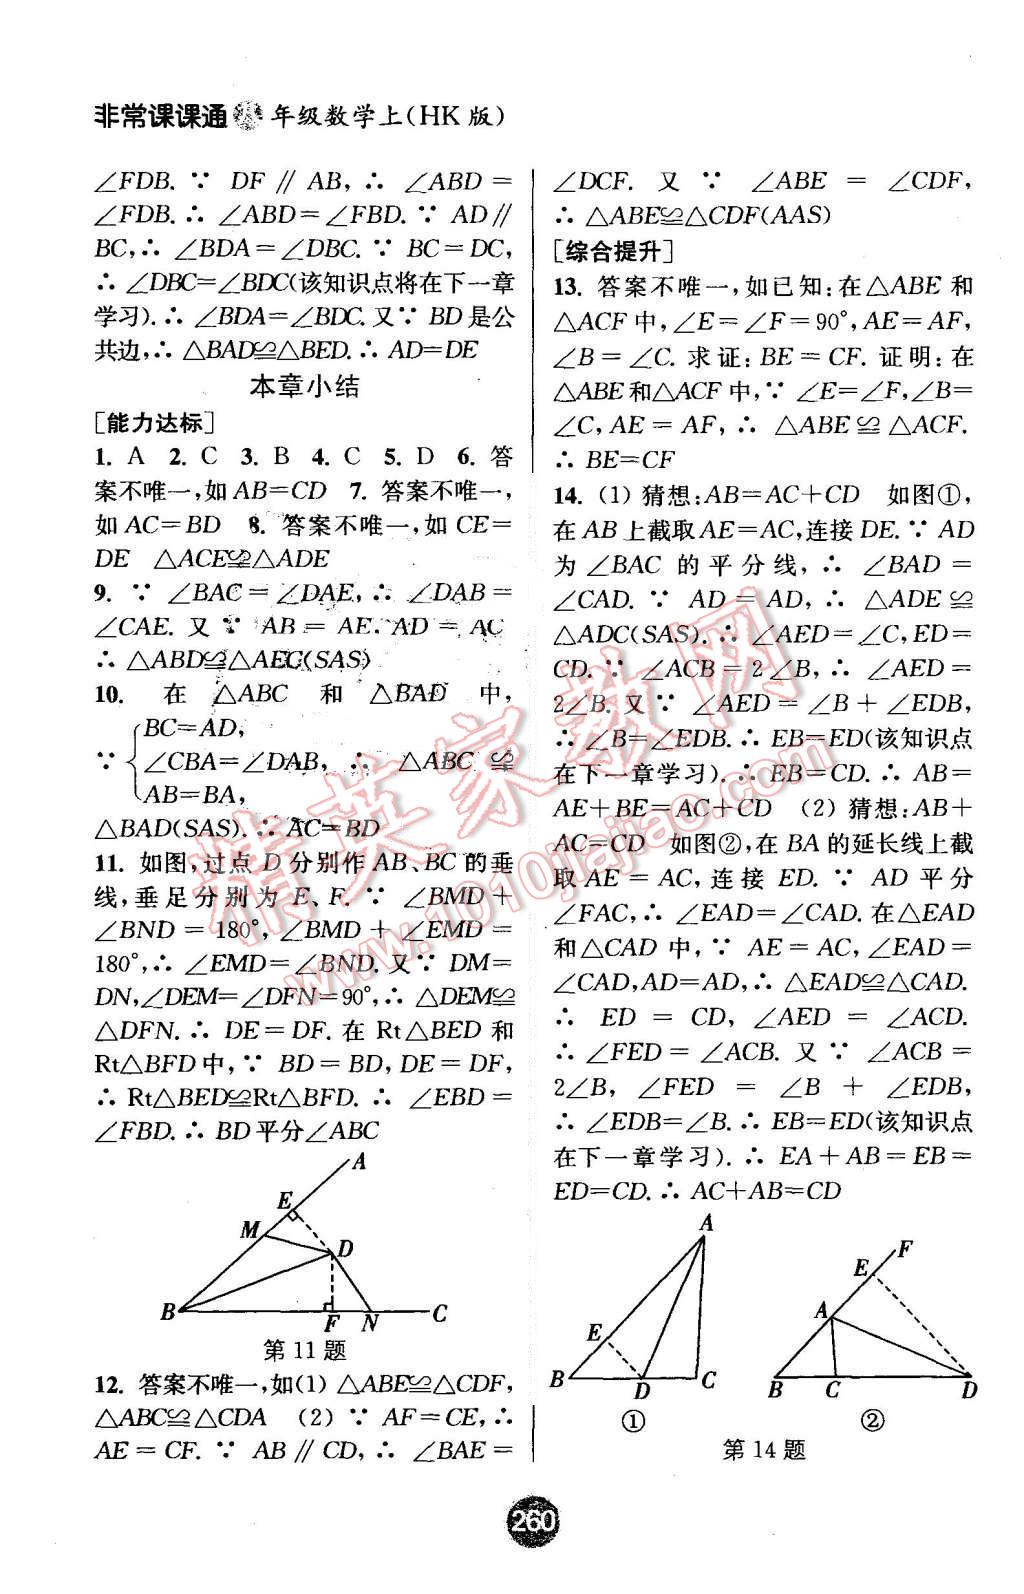 非常课课通 八年级数学上(HK版)
∠FDB. ∵ DF∥AB, ∴ ∠ABD=
∠FDB. ∴ ∠ABD=∠FBD. ∵ AD∥
BC, ∴ ∠BDA=∠DBC. ∵ BC=DC,
∴ ∠DBC=∠BDC(该知识点将在下一章
学习). ∴ ∠BDA=∠BDC. 又∵ BD是公
共边, ∴ △BAD≌△BED. ∴ AD=DE
本章小结
[能力达标]
1. A 2. C 3. B 4. C 5. D 6. 答
案不唯一,如AB=CD 7. 答案不唯一,
如AC=BD 8. 答案不唯一,如CE=
DE △ACE≌△ADE
9. ∵ ∠BAC=∠DAE, ∴ ∠DAB=
∠CAE. 又∵ AB=AE, AD=AC
∴ △ABD≌△AEC(SAS)
10. 在 △ABC 和 △BAD 中,
BC=AD,
∵ ∠CBA=∠DAB, ∴ △ABC≌
AB=BA,
△BAD(SAS). ∴ AC=BD
11. 如图,过点D分别作AB、BC的垂
线,垂足分别为E、F. ∵ ∠BMD+
∠BND=180°, ∠BMD+∠EMD=
180°, ∴ ∠EMD=∠BND. 又∵ DM=
DN, ∠DEM=∠DFN=90°, ∴ △DEM≌
△DFN. ∴ DE=DF. 在Rt△BED和
Rt△BFD中, ∵ BD=BD, DE=DF,
∴ Rt△BED≌Rt△BFD. ∴ ∠EBD=
∠FBD. ∴ BD平分∠ABC
A
E
M
D
B F N C
第11题
12. 答案不唯一,如(1) △ABE≌△CDF,
△ABC≌△CDA (2) ∵ AF=CE, ∴
AE=CF. ∵ AB∥CD, ∴ ∠BAE=
∠DCF. 又 ∵ ∠ABE=∠CDF,
∴ △ABE≌△CDF(AAS)
[综合提升]
13. 答案不唯一,如已知:在△ABE和
△ACF中,∠E=∠F=90°,AE=AF,
∠B=∠C. 求证:BE=CF. 证明:在
△ABE和△ACF中, ∵ ∠E=∠F,∠B=
∠C, AE=AF, ∴ △ABE≌△ACF.
∴ BE=CF
14. (1) 猜想:AB=AC+CD 如图①,
在AB上截取AE=AC,连接DE. ∵ AD
为∠BAC的平分线, ∴ ∠BAD=
∠CAD. ∵ AD=AD, ∴ △ADE≌
△ADC(SAS). ∴ ∠AED=∠C, ED=
CD. ∵ ∠ACB=2∠B, ∴ ∠AED=
2∠B. 又∵ ∠AED=∠B+∠EDB,
∴ ∠B=∠EDB. ∴ EB=ED(该知识点
在下一章学习). ∴ EB=CD. ∴ AB=
AE+BE=AC+CD (2) 猜想:AB+
AC=CD 如图②,在BA的延长线上截
取AE=AC,连接ED. ∵ AD平分
∠FAC, ∴ ∠EAD=∠CAD. 在△EAD
和△CAD中, ∵ AE=AC, ∠EAD=
∠CAD, AD=AD, ∴ △EAD≌△CAD.
∴ ED=CD, ∠AED=∠ACD.
∴ ∠FED=∠ACB. 又∵ ∠ACB=
2∠B, ∠FED=∠B+∠EDB,
∴ ∠EDB=∠B. ∴ EB=ED(该知识点
在下一章学习). ∴ EA+AB=EB=
ED=CD. ∴ AC+AB=CD
A
E
B D C
①
F
E
A
B C D
②
第14题
260
精英家教网
www.1010jiajiao.com